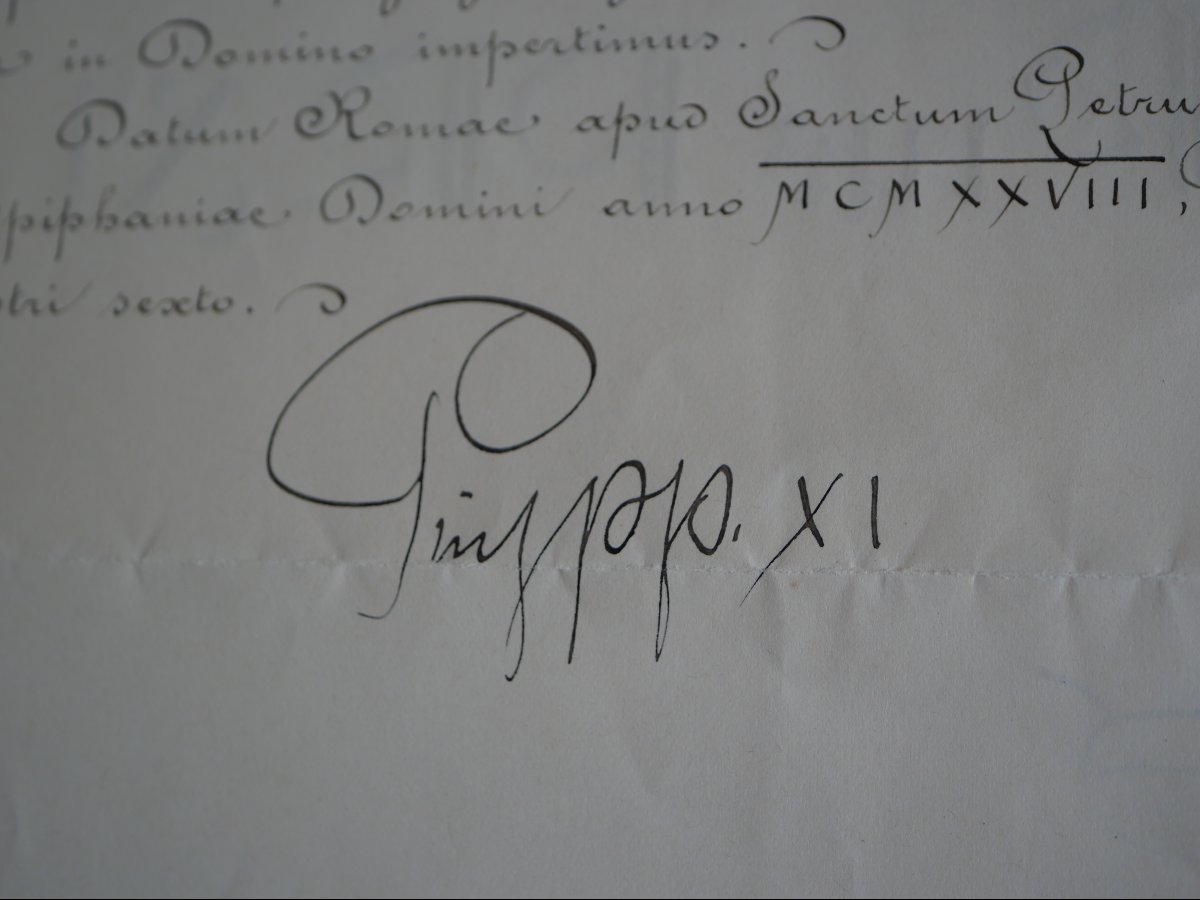 in Domino impertimus.
Datum Romae apud Sanctum Petru
piphaniae Domini anno MCMXXVIII,
tri sexto.
Pius pp. XI